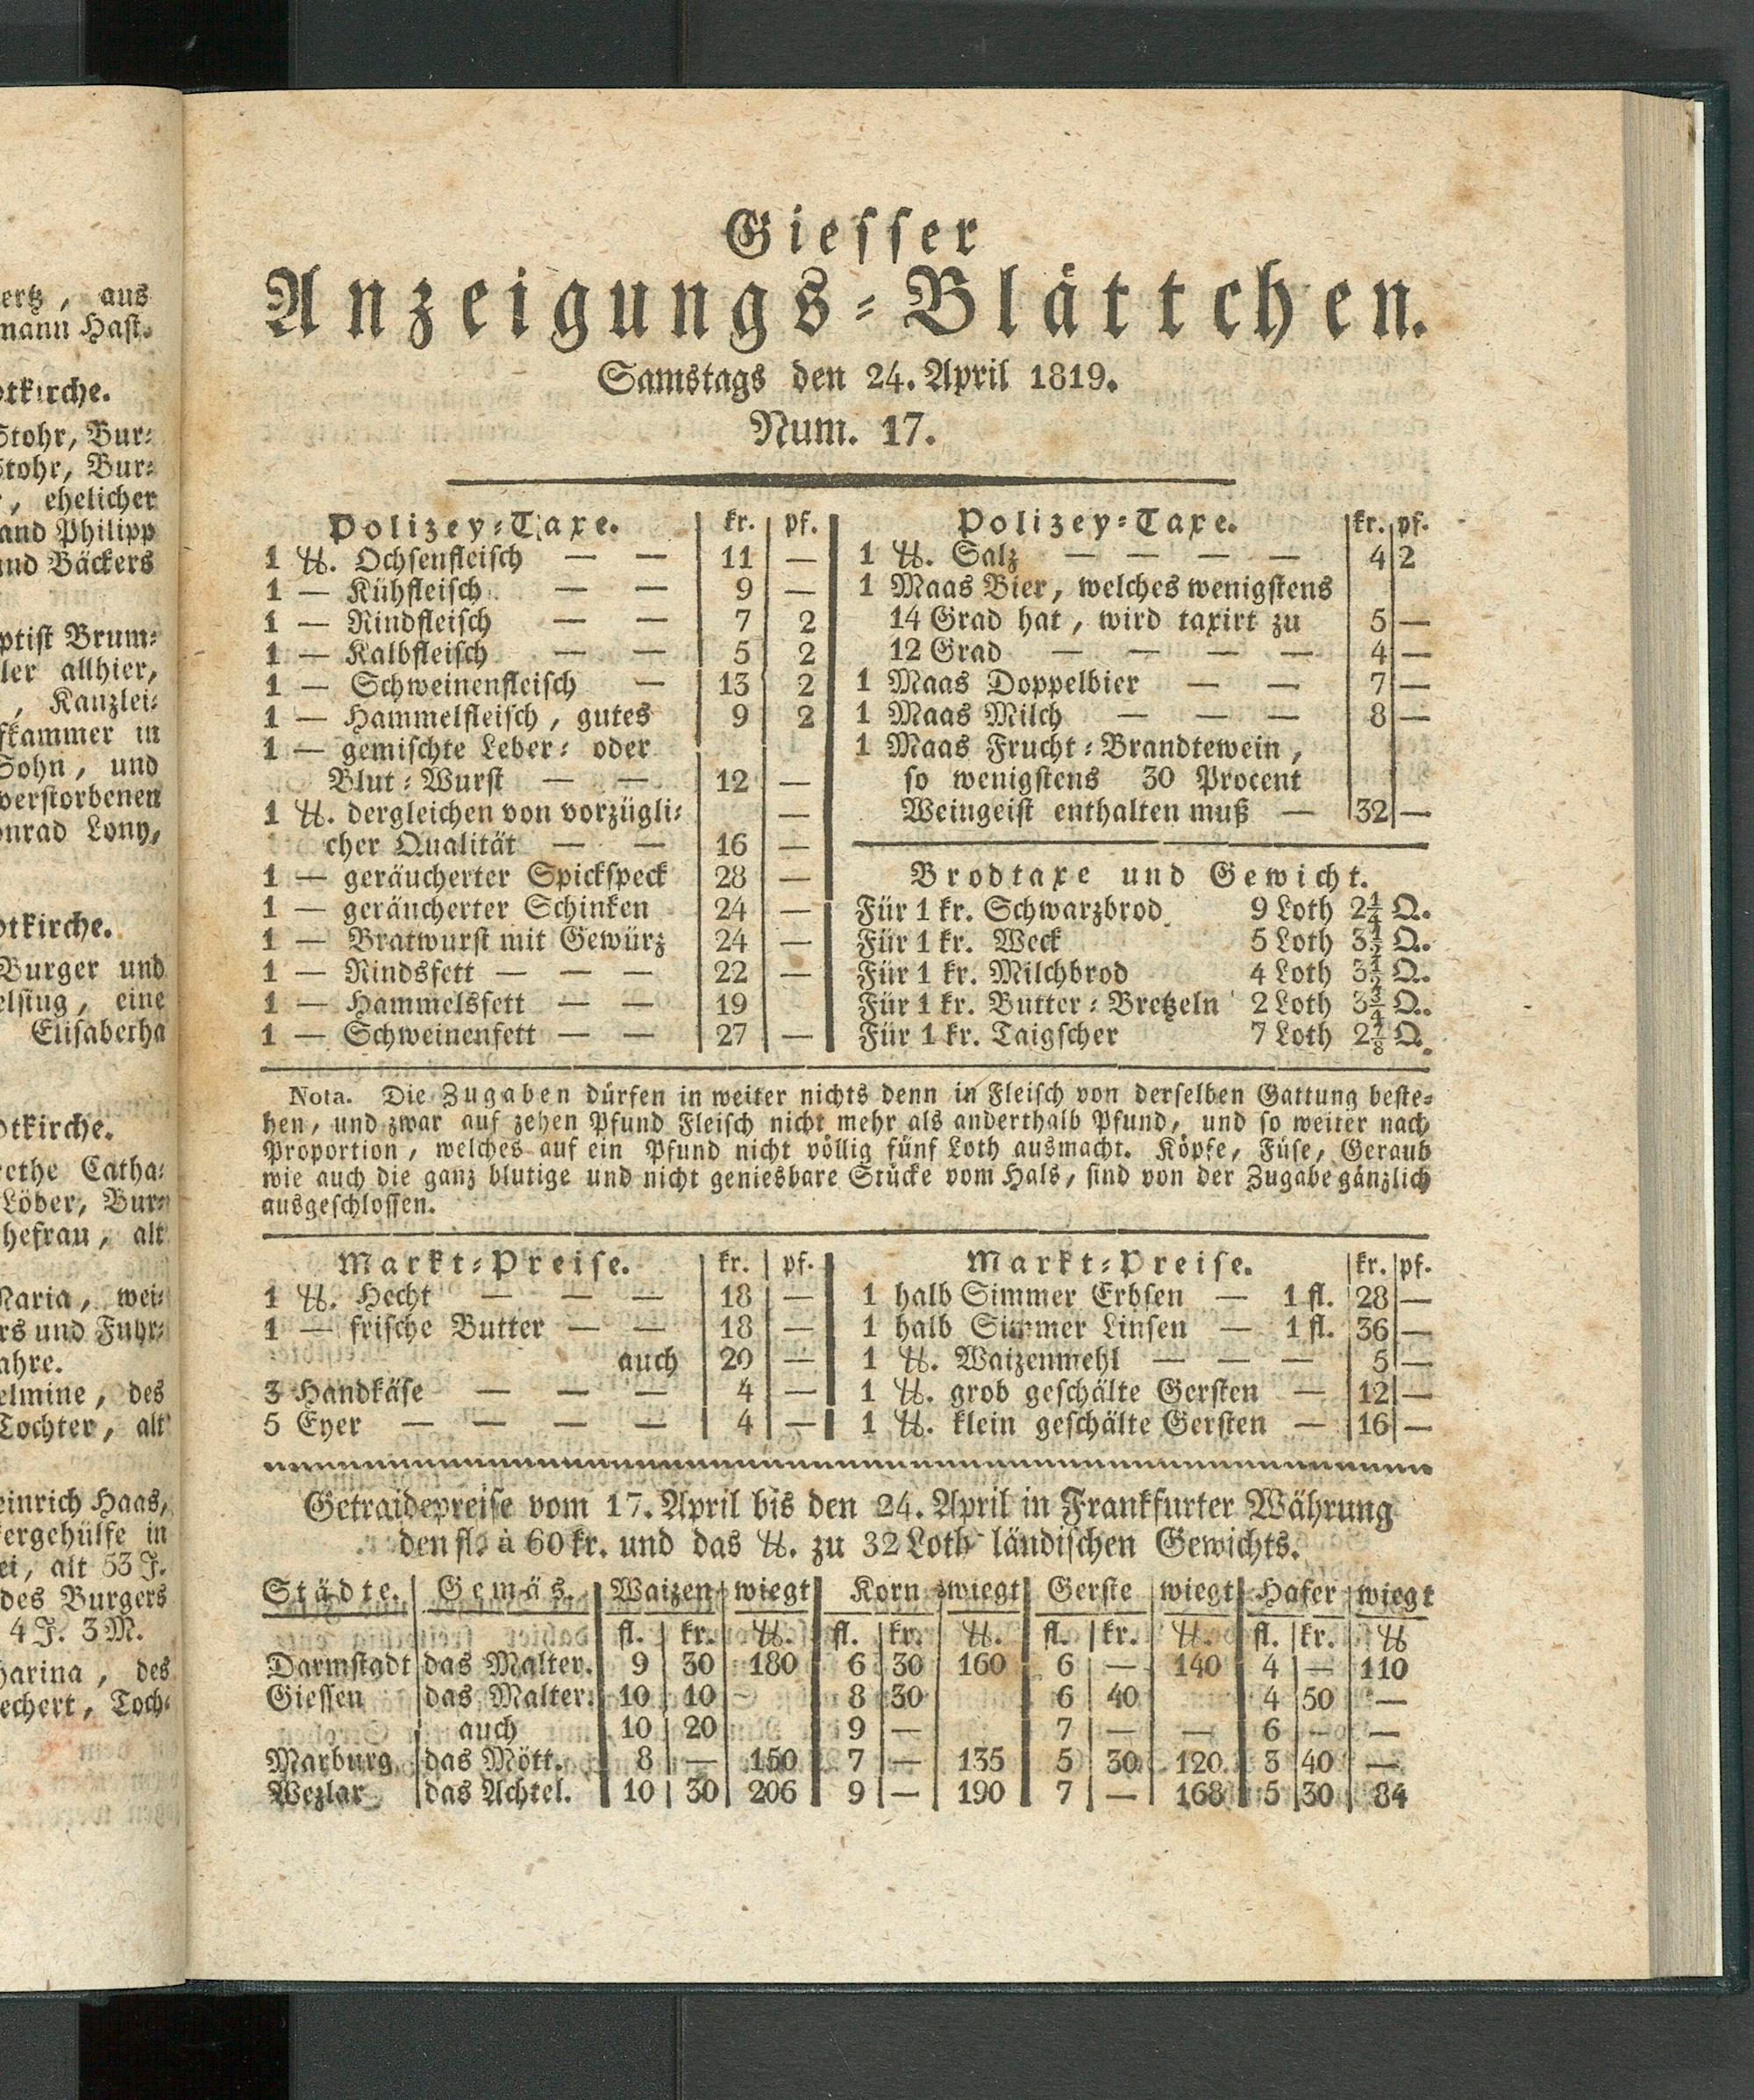 ertz, aus
mann Hast.
otkirche.
Stohr, Bur⸗
Stohr, Bur⸗
, ehelicher
and Philipp
und Bäckers
ptist Brum⸗
ler allhier,
, Kanzlei⸗
fkammer in
Sohn, und
verstorbenen
onrad Lony,
otkirche.
Burger und
elsing, eine
Elisabetha
otkirche.
rethe Catha⸗
Löber, Bur⸗
hefrau, alt
Maria, wei⸗
rs und Fuhr⸗
ahre.
elmine, des
Tochter, alt
einrich Haas,
ergehülfe in
ei, alt 53 J.
des Burgers
4 J. 3 M.
harina, des
echert, Toch⸗
Giesser
Anzeigungs⸗Blättchen.
Samstags den 24. April 1819.
Num. 17.
Polizey⸗Taxe. kr. pf.
1 ℔. Ochsenfleisch — — 11 —
1 — Kühfleisch — — 9 —
1 — Rindfleisch — — 7 2
1 — Kalbfleisch — — 5 2
1 — Schweinenfleisch — 13 2
1 — Hammelfleisch, gutes 9 2
1 — gemischte Leber⸗ oder
Blut⸗Wurst — — 12 —
1 ℔. dergleichen von vorzügli⸗ —
cher Qualität — — 16 —
1 — geräucherter Spickspeck 28 —
1 — geräucherter Schinken 24 —
1 — Bratwurst mit Gewürz 24 —
1 — Rindsfett — — — 22 —
1 — Hammelsfett — — 19
1 — Schweinenfett — — 27 —
Polizey⸗Taxe. kr. pf.
1 ℔. Salz — — — — 4 2
1 Maas Bier, welches wenigstens
14 Grad hat, wird taxirt zu 5 —
12 Grad — — — — 4 —
1 Maas Doppelbier — — 7 —
1 Maas Milch — — — 8 —
1 Maas Frucht⸗Brandtewein,
so wenigstens 30 Procent
Weingeist enthalten muß — 32 —
Brodtaxe und Gewicht.
Für 1 kr. Schwarzbrod 9 Loth 2¼ Q.
Für 1 kr. Weck 5 Loth 3½ Q.
Für 1 kr. Milchbrod 4 Loth 3½ Q.
Für 1 kr. Butter⸗Bretzeln 2 Loth 3¾ Q.
Für 1 kr. Taigscher 7 Loth 2⅞ Q.
Nota. Die Zugaben dürfen in weiter nichts denn in Fleisch von derselben Gattung beste⸗
hen, und zwar auf zehen Pfund Fleisch nicht mehr als anderthalb Pfund, und so weiter nach
Proportion, welches auf ein Pfund nicht völlig fünf Loth ausmacht. Köpfe, Füse, Geraub
wie auch die ganz blutige und nicht geniesbare Stücke vom Hals, sind von der Zugabe gänzlich
ausgeschlossen.
Markt⸗Preise. kr. pf.
1 ℔. Hecht — — — 18 —
1 — frische Butter — — 18 —
auch 20 —
3 Handkäse — — — 4 —
5 Eyer — — — — 4 —
Markt⸗Preise. kr. pf.
1 halb Simmer Erbsen — 1 fl. 28 —
1 halb Simmer Linsen — 1 fl. 36 —
1 ℔. Waizenmehl — — — 5 —
1 ℔. grob geschälte Gersten — 12 —
1 ℔. klein geschälte Gersten — 16 —
Getraidepreise vom 17. April bis den 24. April in Frankfurter Währung
den fl. à 60 kr. und das ℔. zu 32 Loth ländischen Gewichts.
Städte. Gemäs. Waizen wiegt Korn wiegt Gerste wiegt Hafer wiegt
fl. kr. ℔. fl. kr. ℔. fl. kr. ℔. fl. kr. ℔
Darmstadt das Malter. 9 30 180 6 30 160 6 — 140 4 — 110
Giessen das Malter. 10 10 — 8 30 6 40 4 50 —
auch 10 20 9 — 7 — — 6 — —
Marburg das Mött. 8 — 150 7 — 135 5 30 120 3 40 —
Wezlar das Achtel. 10 30 206 9 — 190 7 — 168 5 30 84